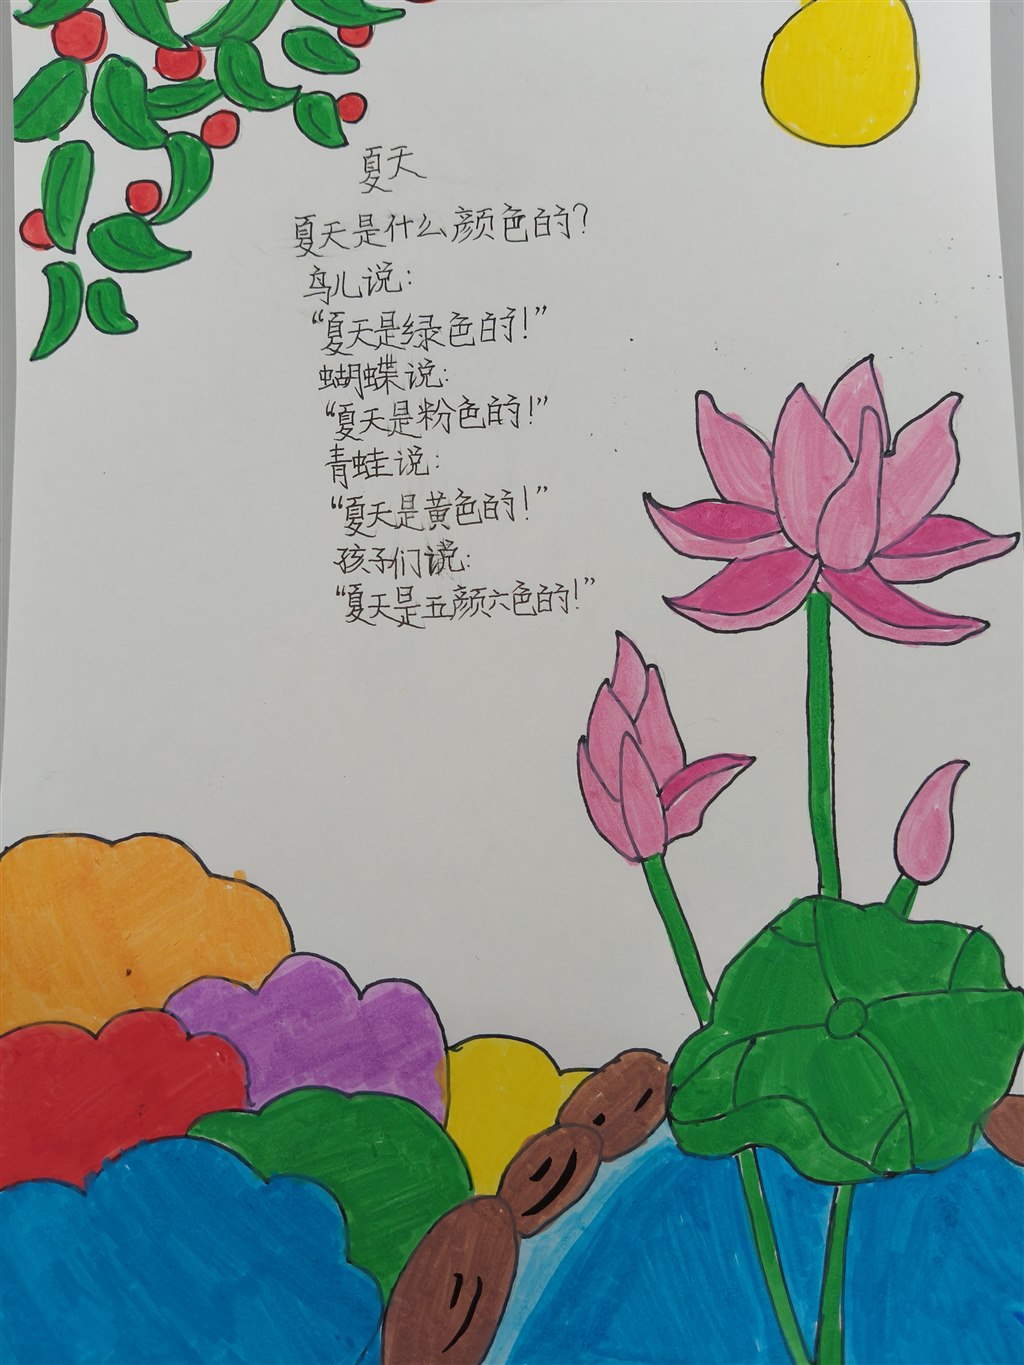 夏天
夏天是什么颜色的?
鸟儿说:
“夏天是绿色的!”
蝴蝶说:
“夏天是粉色的!”
青蛙说:
“夏天是黄色的!”
孩子们说:
“夏天是五颜六色的!”